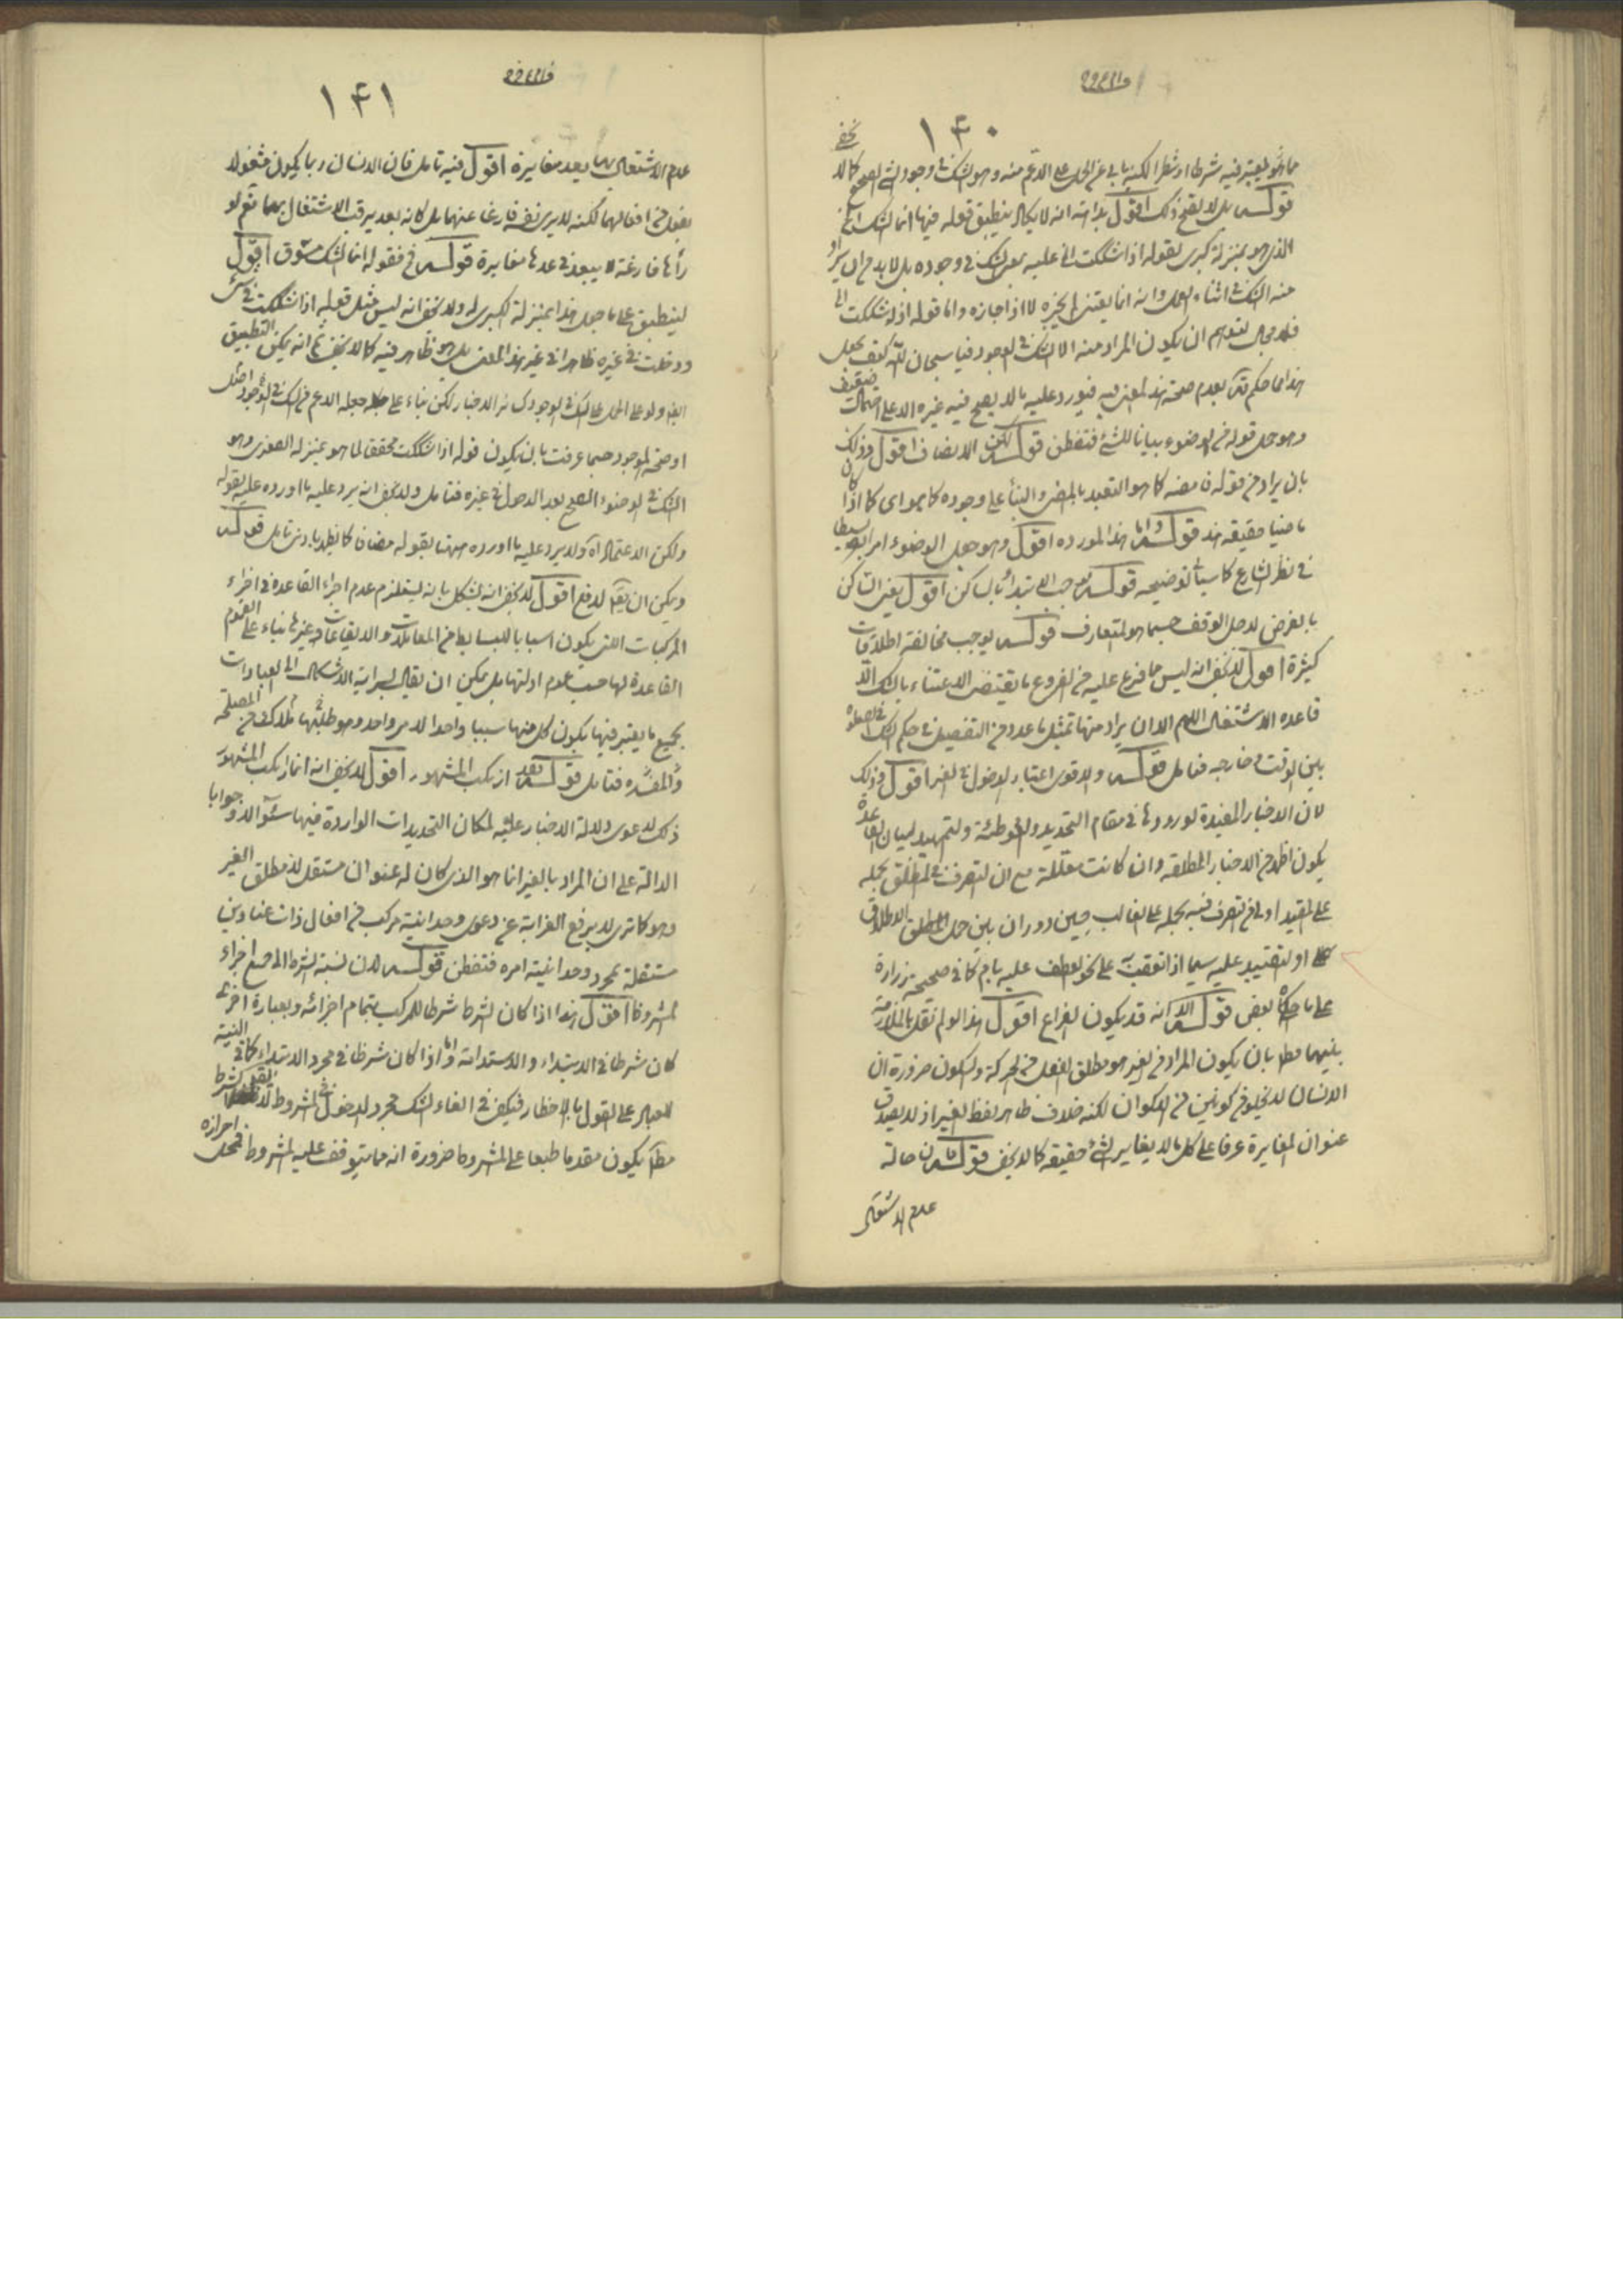 ۱۴۰
قوله بل لا يصح ذلك اقول بداهة انه لا يكاد ينطبق قوله فيها انما الشك الخ
الذى هو بمنزلة كبرى لقوله اذا شككت الى عليه بمعنى الشك فى وجوده بل لا بد من ان يراد
منه الشك فى اثناء العمل وانه انما يعتنى اذا جازه واما قوله اذا شككت الى
فلا مجال لتوهم ان يكون المراد منه الا الشك فى الوجود فيا سبحان الله كيف يجعل
هذا مما حكم بعدم صحة هذا المعنى فيه فيورد عليه بما لا يصح فيه غيره الا على
وهو جعل قوله من الوضوء بيانا للشئ فتفطن قوله لكن الانصاف اقول وذلك
بان يراد من قوله فى مضيه كما هو التعبد بالمضى والبناء على وجوده كما هو اى كما اذا كان
ماضيا حقيقة قوله واما هذا المورد اه اقول وهو جعل الوضوء امرا بسيطا
فى نظر الشارع كما سيأتى توضيحه قوله الابتداء بالساكن اقول يعنى الساكن
بالعرض لاجل الوقف حسبما هو المتعارف قوله يوجب مخالفة اطلاقات
كثيرة اقول لا يخفى انه ليس ما فرع عليه من الفروع ما يقتضى الاعتناء بالشك الا
قاعدة الاشتغال اللهم الا ان يراد منها تمثل ما عد من التفصيل فى حكم الشك فى الصلوة
بين الوقت وخارجه فتأمل قوله والاقوى اعتبار الدخول فى الغير اقول وذلك
لان الاخبار المقيدة لورودها فى مقام التحديد والتوطئة والتمهيد لبيان القاعدة
يكون اظهر من الاخبار المطلقة وان كانت معللة مع ان التصرف فى المطلق بحمله
على المقيد اولى من التصرف فيه بحمله على الغالب حين دوران بين حمل المطلق الاطلاق
او التقييد عليه سيما اذا تعقبت على نحو العطف عليه بثم كما فى صحيحة زرارة
على ما حكاه بعض قوله الا انه قد يكون الفراغ اقول هذا لو لم نقل بالملازمة
بينهما مطلقا بان يكون المراد من الغير هو مطلق الفعل من الحركة والسكون ضرورة ان
الانسان لا يخلو من كونين من الاكوان لكنه خلاف ظاهر لفظ الغير اذ لا يصدق
عنوان المغايرة عرفا على كل ما لا يغاير الشئ حقيقة كما لا يخفى قوله حالة
عدم الاشتغال
۱۴۱
عدم الاشتغال بها يعد مغايرة اقول فيه تأمل فان الانسان ربما يكون مشغولا
بفعل من افعالهما لكنه لا يرى نفسه فارغا عنهما بل كانه بعد يرقب الاشتغال بهما نعم لو
رأها فارغة لا يبعد فى عدها مغايرة قوله فقوله انما الشك مسوق اقول
لينطبق على ما جعل هذا بمنزلة الكبرى له ولا يخفى انه ليس مثل قوله اذا شككت فى شئ
ودخلت فى غيره ظاهرا فى غير هذا المعنى بل هو ظاهر فيه كما لا يخفى ثم انه يمكن التطبيق
ايضا ولو على الحمل على الشك فى الوجود كسائر الاخبار لكن بناء على جعله الاعم من الشك فى الوجود
او صحة الموجود حسبما عرفت بان يكون قوله اذا شككت محققا لما هو بمنزلة الصغرى وهو
الشك فى الوضوء الصحيح بعد الدخول فى غيره فتأمل ولا يخفى انه يرد عليه ما اورده عليه بقوله
ولكن الاعتماد اه ولا يرد عليه ما اورده هيهنا بقوله مضافا كما يظهر بادنى تأمل قوله
ويمكن ان يقال لدفع اقول لا يخفى انه يشكل بانه يستلزم عدم اجراء القاعدة فى اجزاء
المركبات التى يكون اسبابا للبسائط من المعاملات والايقاعات وغيرها بناء على عموم
القاعدة لها حسب عموم ادلتها بل يمكن ان يقال بسراية الاشكال الى العبادات
بجميع ما يعتبر فيها يكون كل منها سببا واحدا لامر واحد وهو مطلبها كذلك من المصلحة
والمفسدة فتأمل قوله بعد ارتكب المشهور اقول لا يخفى انه انما ارتكب المشهور
ذلك لدعوى دلالة الاخبار عليه لمكان التحديدات الواردة فيها سؤالا وجوابا
الدالة على ان المراد بالغير انما هو الذى كان له عنوان مستقل لا مطلق الغير
وهو كما ترى لا يرفع الغرابة عن دعوى وحدانية مركب من افعال ذات عناوين
مستقلة بمجرد وحدانية امره فتفطن قوله لان نسبة الشرط الى جميع اجزاء
المشروط اقول هذا اذا كان الشرط شرطا للمركب بتمام اجزائه وبعبارة اخرى
كان شرطا فى الابتداء والاستدامة واما اذا كان شرطا فى مجرد الابتداء كما فى النية
على القول بالاخطار فيكفى فى الغاء الشك مجرد الدخول فى المشروط
مطلقا يكون مقدما طبعا على المشروط ضرورة انه مما يتوقف عليه المشروط فمحل احرازه